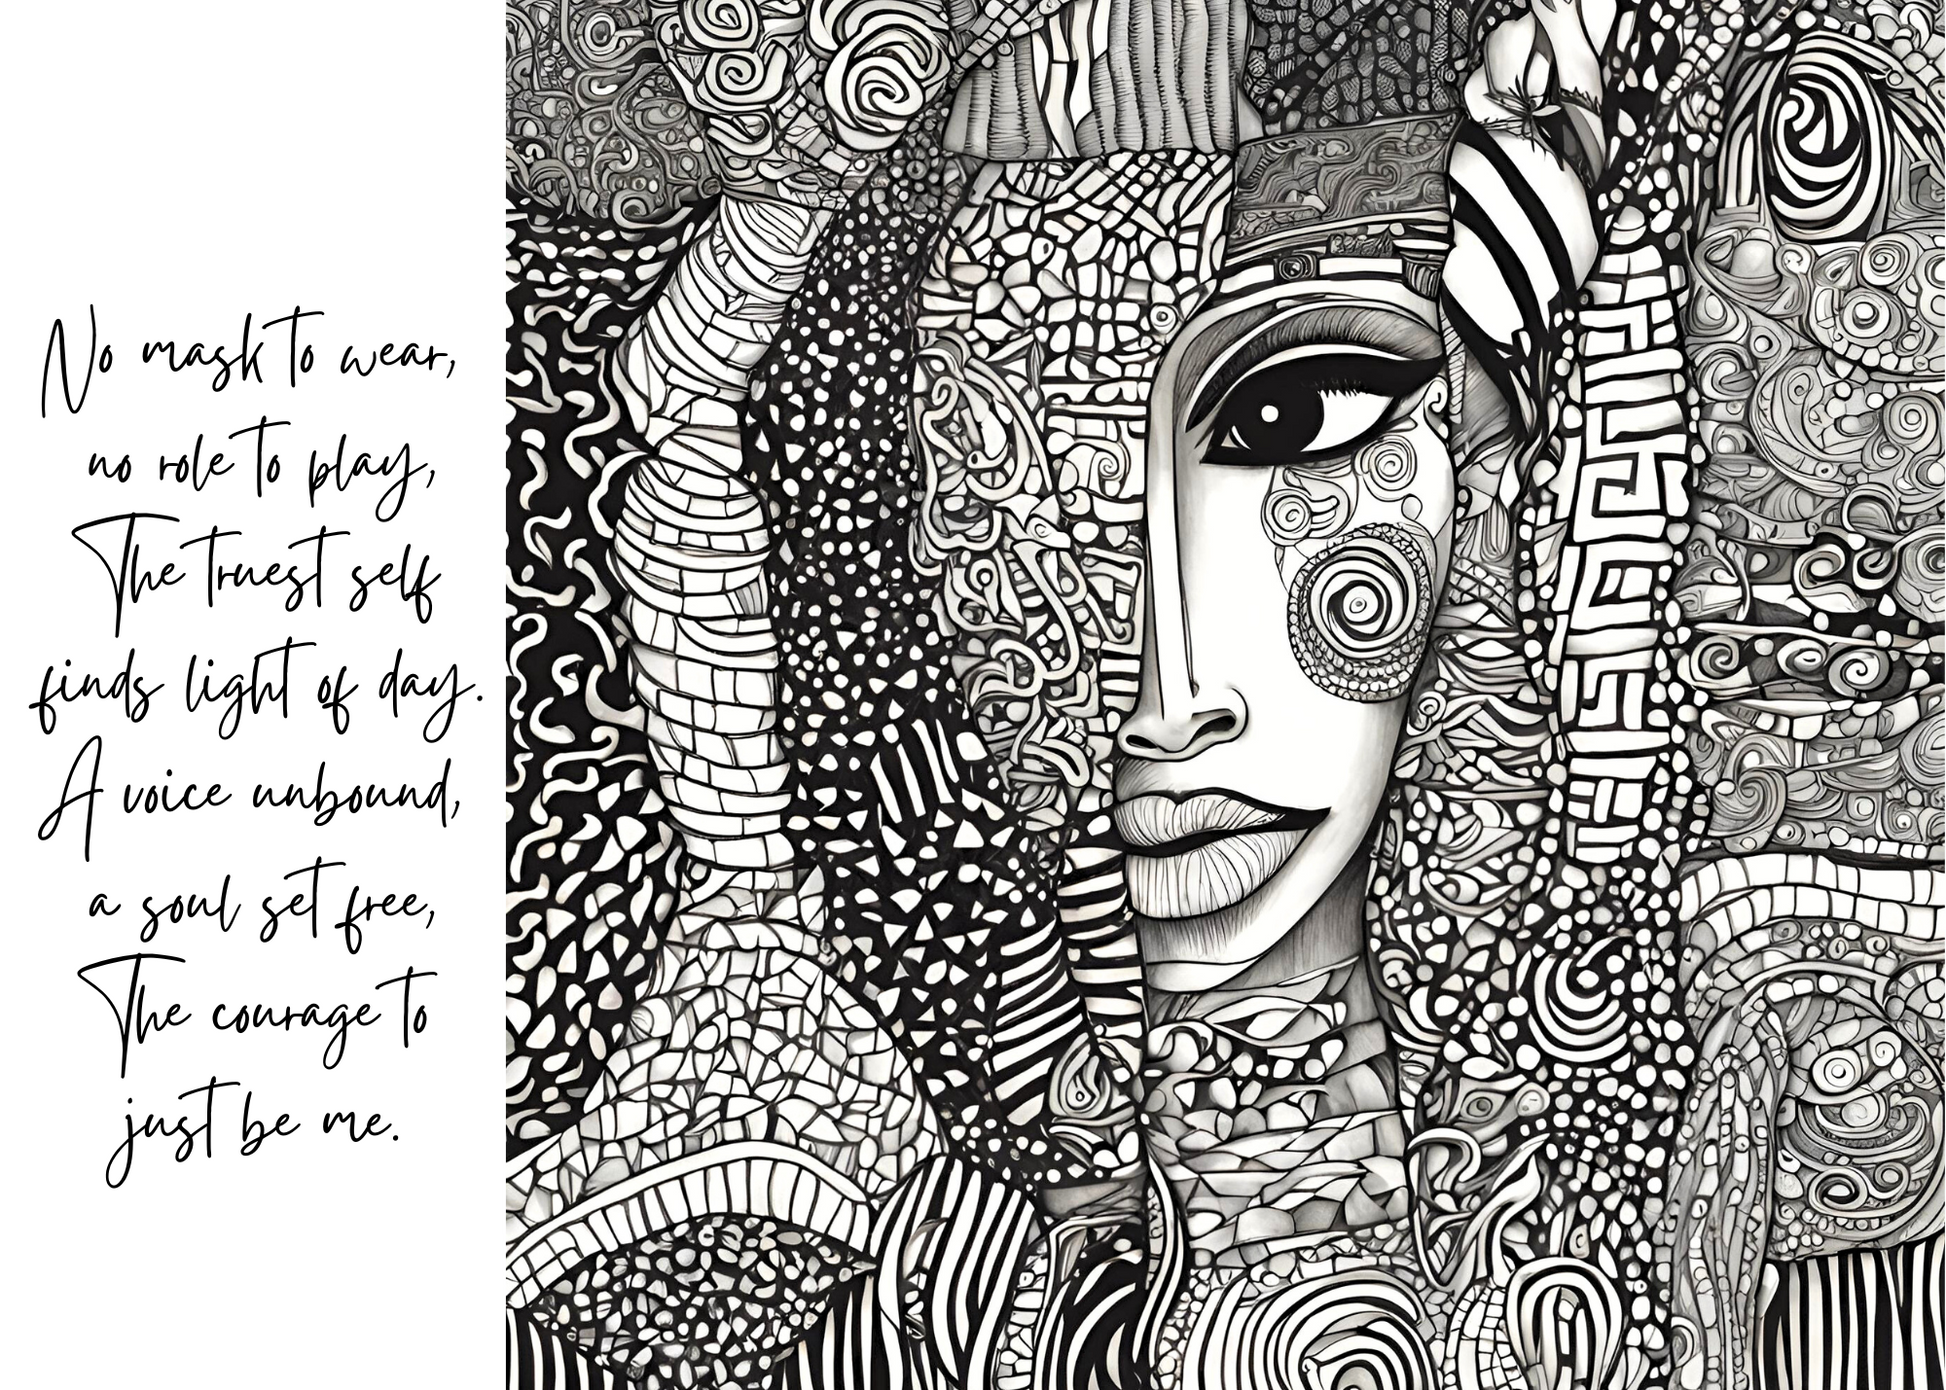 No mask to wear,
no role to play,
The truest self
finds light of day.
A voice unbound,
a soul set free,
The courage to
just be me.